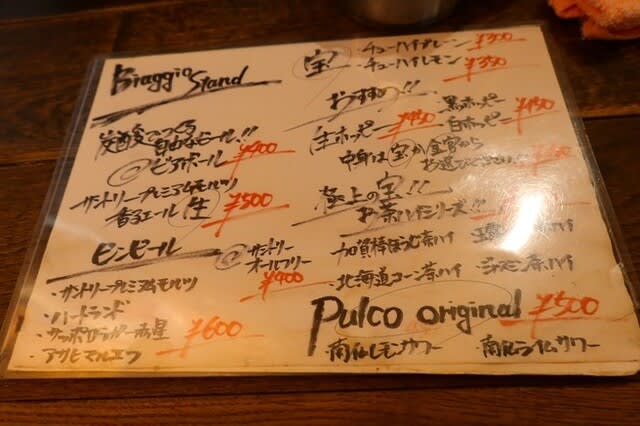 Biaggio Stand
炭酸でつくる
自由なビール!!
@ビアボール ¥400
サントリープレミアムモルツ
香るエール 生 ¥500
ビンビール
@サントリー
オールフリー
¥400
・サントリープレミアムモルツ
・ハートランド
・サッポロラガー赤星
・アサヒマルエフ
¥600
宝!
・チューハイプレーン ¥300
・チューハイレモン ¥350
おすすめ!!
生ホッピー
黒ホッピー
白ホッピー
中身は宝か金宮から
極上の宝!!
お茶ハイシリーズ!!
加賀棒ほうじ茶ハイ
・北海道コーン茶ハイ
・ジャスミン茶ハイ
Pulco original ¥500
・南仏レモンサワー
・南仏ライムサワー